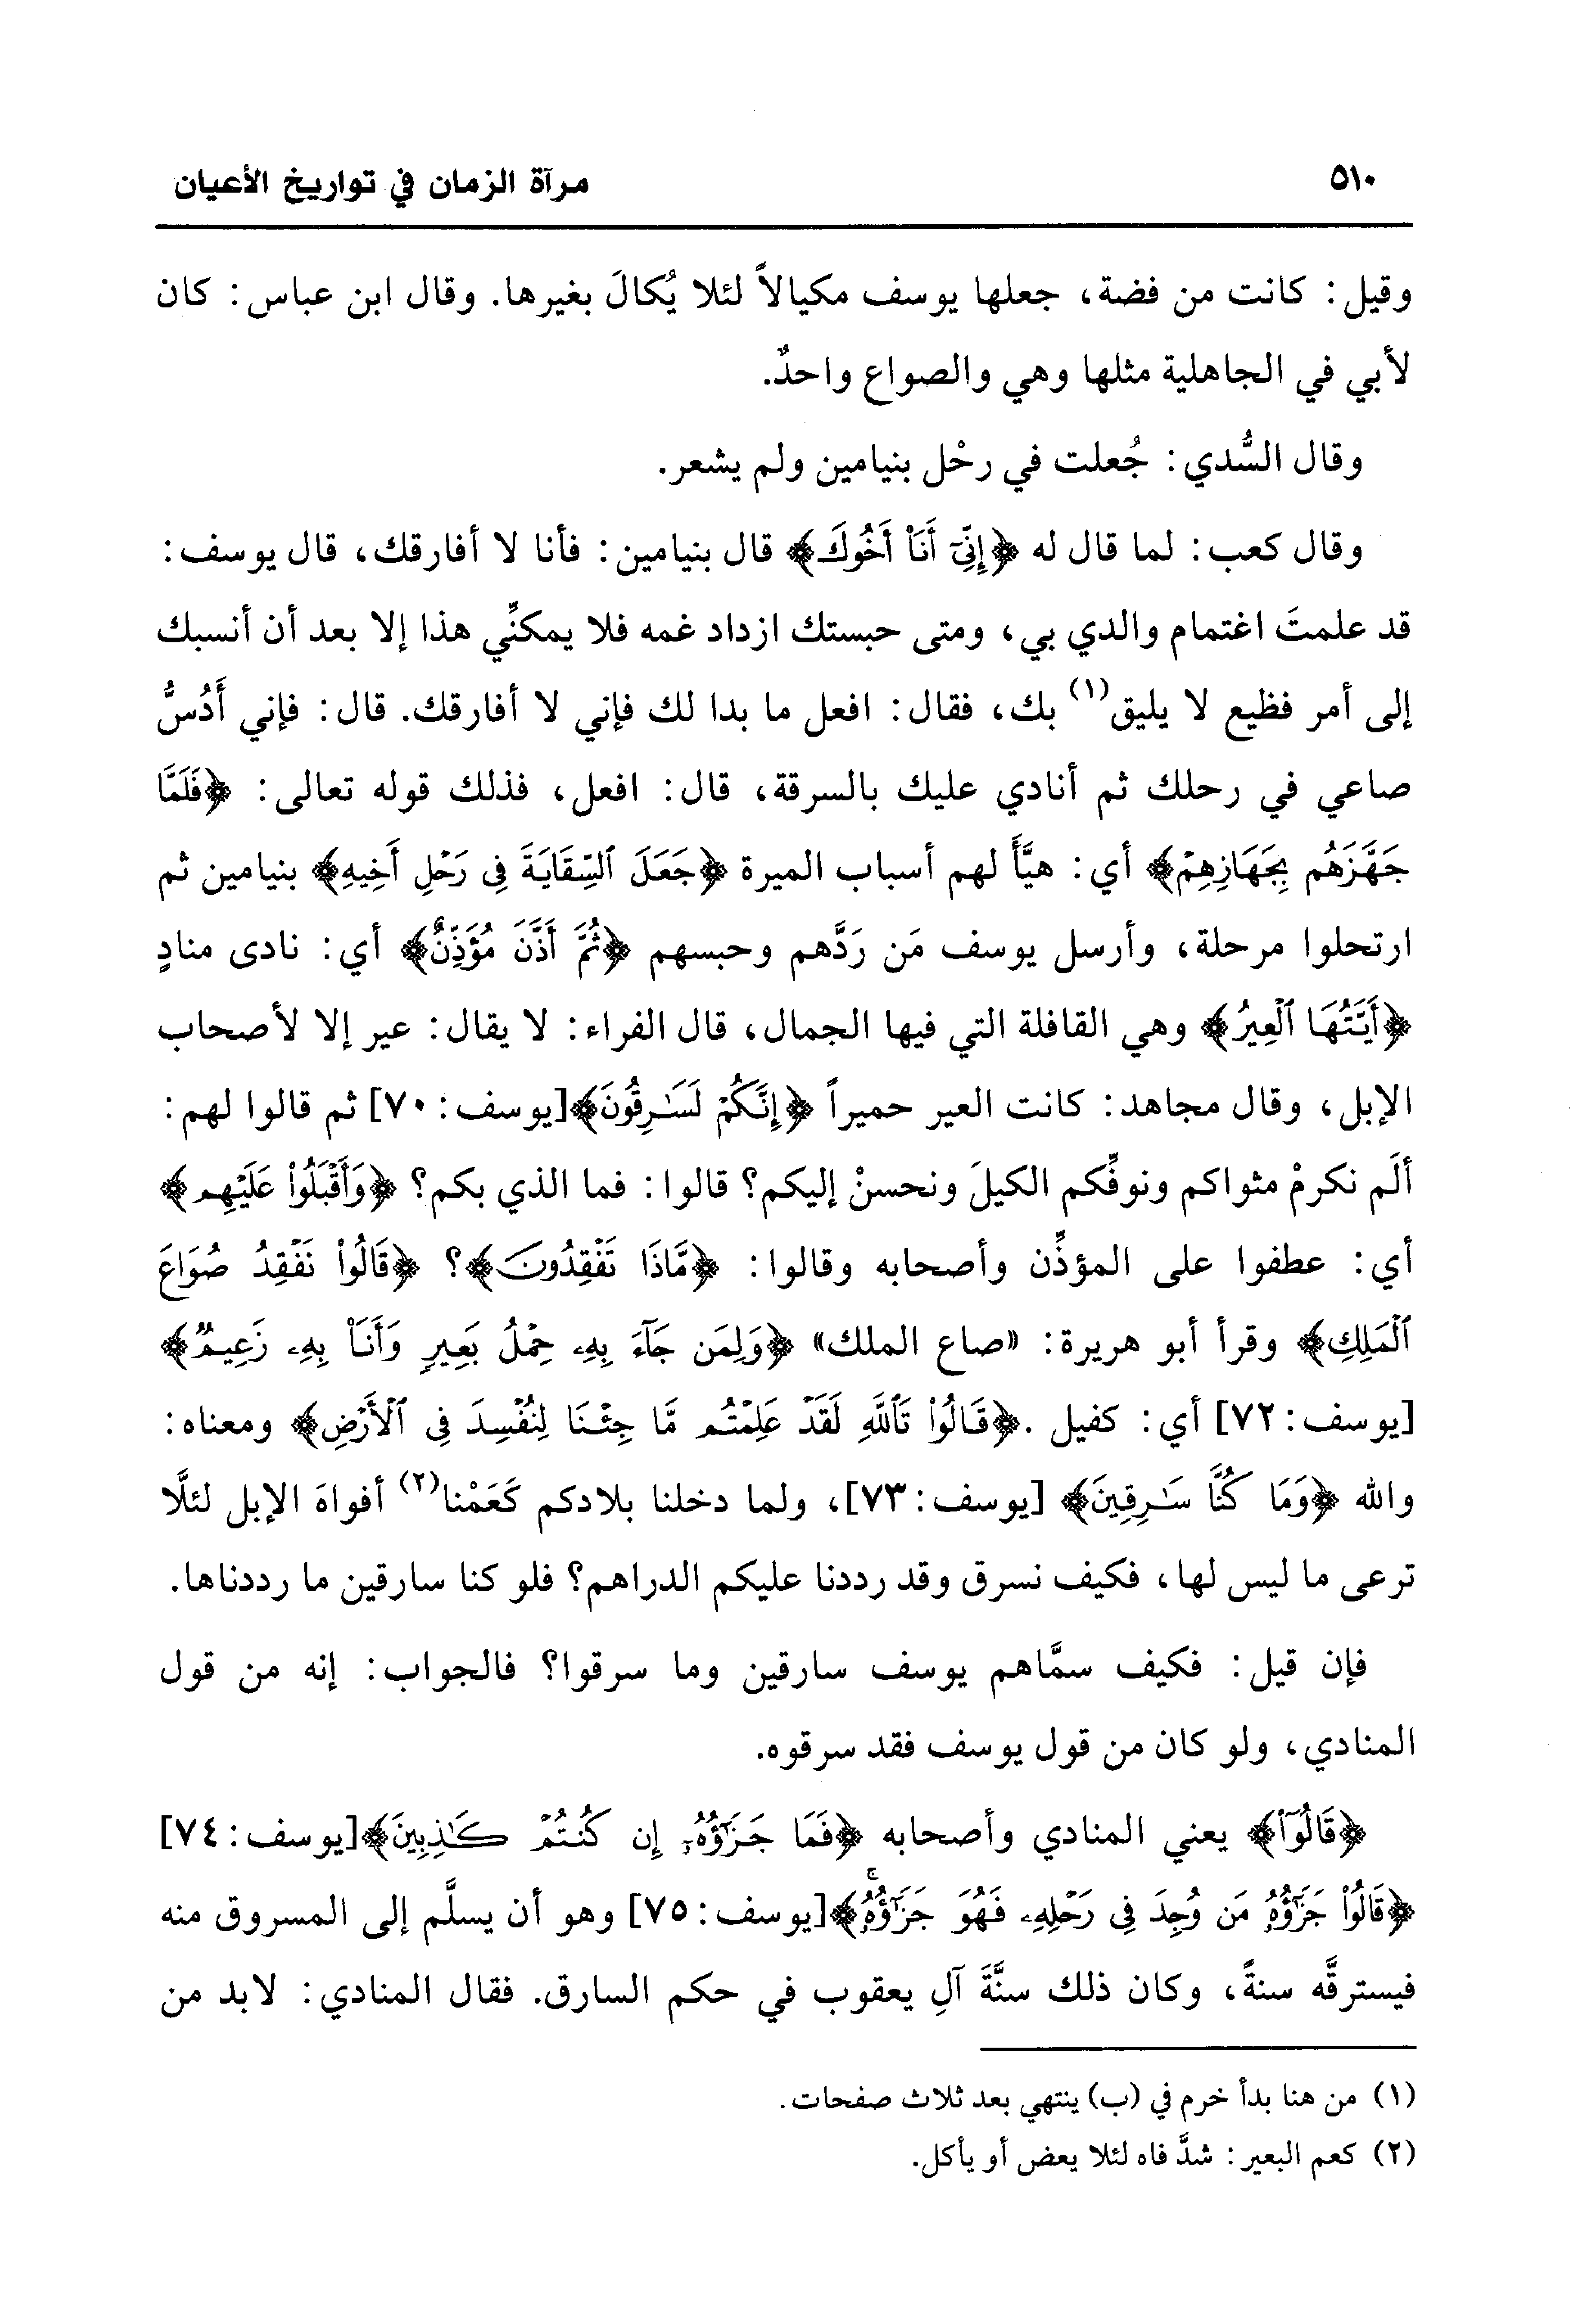 ٥١٠ مرآة الزمان في تواريخ الأعيان
وقيل: كانت من فضة، جعلها يوسف مكيالاً لئلا يُكالَ بغيرها. وقال ابن عباس: كان
لأبي في الجاهلية مثلها وهي والصواع واحدٌ.
وقال السُّدي: جُعلت في رحْل بنيامين ولم يشعر.
وقال كعب: لما قال له ﴿إِنِّيٓ أَنَا۠ أَخُوكَ﴾ قال بنيامين: فأنا لا أفارقك، قال يوسف:
قد علمتَ اغتمام والدي بي، ومتى حبستك ازداد غمه فلا يمكنِّي هذا إلا بعد أن أنسبك
إلى أمر فظيع لا يليق(١) بك، فقال: افعل ما بدا لك فإني لا أفارقك. قال: فإني أَدُسُّ
صاعي في رحلك ثم أنادي عليك بالسرقة، قال: افعل، فذلك قوله تعالى: ﴿فَلَمَّا
جَهَّزَهُم بِجَهَازِهِمْ﴾ أي: هيَّأَ لهم أسباب الميرة ﴿جَعَلَ ٱلسِّقَايَةَ فِى رَحْلِ أَخِيهِ﴾ بنيامين ثم
ارتحلوا مرحلة، وأرسل يوسف مَن رَدَّهم وحبسهم ﴿ثُمَّ أَذَّنَ مُؤَذِّنٌ﴾ أي: نادى منادٍ
﴿أَيَّتُهَا ٱلْعِيرُ﴾ وهي القافلة التي فيها الجمال، قال الفراء: لا يقال: عير إلا لأصحاب
الإبل، وقال مجاهد: كانت العير حميراً ﴿إِنَّكُمْ لَسَٰرِقُونَ﴾[يوسف: ٧٠] ثم قالوا لهم:
ألَم نكرمْ مثواكم ونوفِّكم الكيلَ ونحسنْ إليكم؟ قالوا: فما الذي بكم؟ ﴿وَأَقْبَلُوا۟ عَلَيْهِم﴾
أي: عطفوا على المؤذِّن وأصحابه وقالوا: ﴿مَّاذَا تَفْقِدُونَ﴾؟ ﴿قَالُوا۟ نَفْقِدُ صُوَاعَ
ٱلْمَلِكِ﴾ وقرأ أبو هريرة: «صاع الملك» ﴿وَلِمَن جَآءَ بِهِۦ حِمْلُ بَعِيرٍ وَأَنَا۠ بِهِۦ زَعِيمٌ﴾
[يوسف: ٧٢] أي: كفيل .﴿قَالُوا۟ تَٱللَّهِ لَقَدْ عَلِمْتُم مَّا جِئْنَا لِنُفْسِدَ فِى ٱلْأَرْضِ﴾ ومعناه:
والله ﴿وَمَا كُنَّا سَٰرِقِينَ﴾ [يوسف: ٧٣]، ولما دخلنا بلادكم كَعَمْنا(٢) أفواهَ الإبل لئلَّا
ترعى ما ليس لها، فكيف نسرق وقد رددنا عليكم الدراهم؟ فلو كنا سارقين ما رددناها.
فإن قيل: فكيف سمَّاهم يوسف سارقين وما سرقوا؟ فالجواب: إنه من قول
المنادي، ولو كان من قول يوسف فقد سرقوه.
﴿قَالُوٓا۟﴾ يعني المنادي وأصحابه ﴿فَمَا جَزَٰٓؤُهُۥٓ إِن كُنتُمْ كَٰذِبِينَ﴾[يوسف: ٧٤]
﴿قَالُوا۟ جَزَٰٓؤُهُۥ مَن وُجِدَ فِى رَحْلِهِۦ فَهُوَ جَزَٰٓؤُهُۥۚ﴾[يوسف: ٧٥] وهو أن يسلَّم إلى المسروق منه
فيسترقَّه سنةً، وكان ذلك سنَّةَ آلِ يعقوب في حكم السارق. فقال المنادي: لابد من
(١) من هنا بدأ خرم في (ب) ينتهي بعد ثلاث صفحات.
(٢) كعم البعير: شدَّ فاه لئلا يعض أو يأكل.